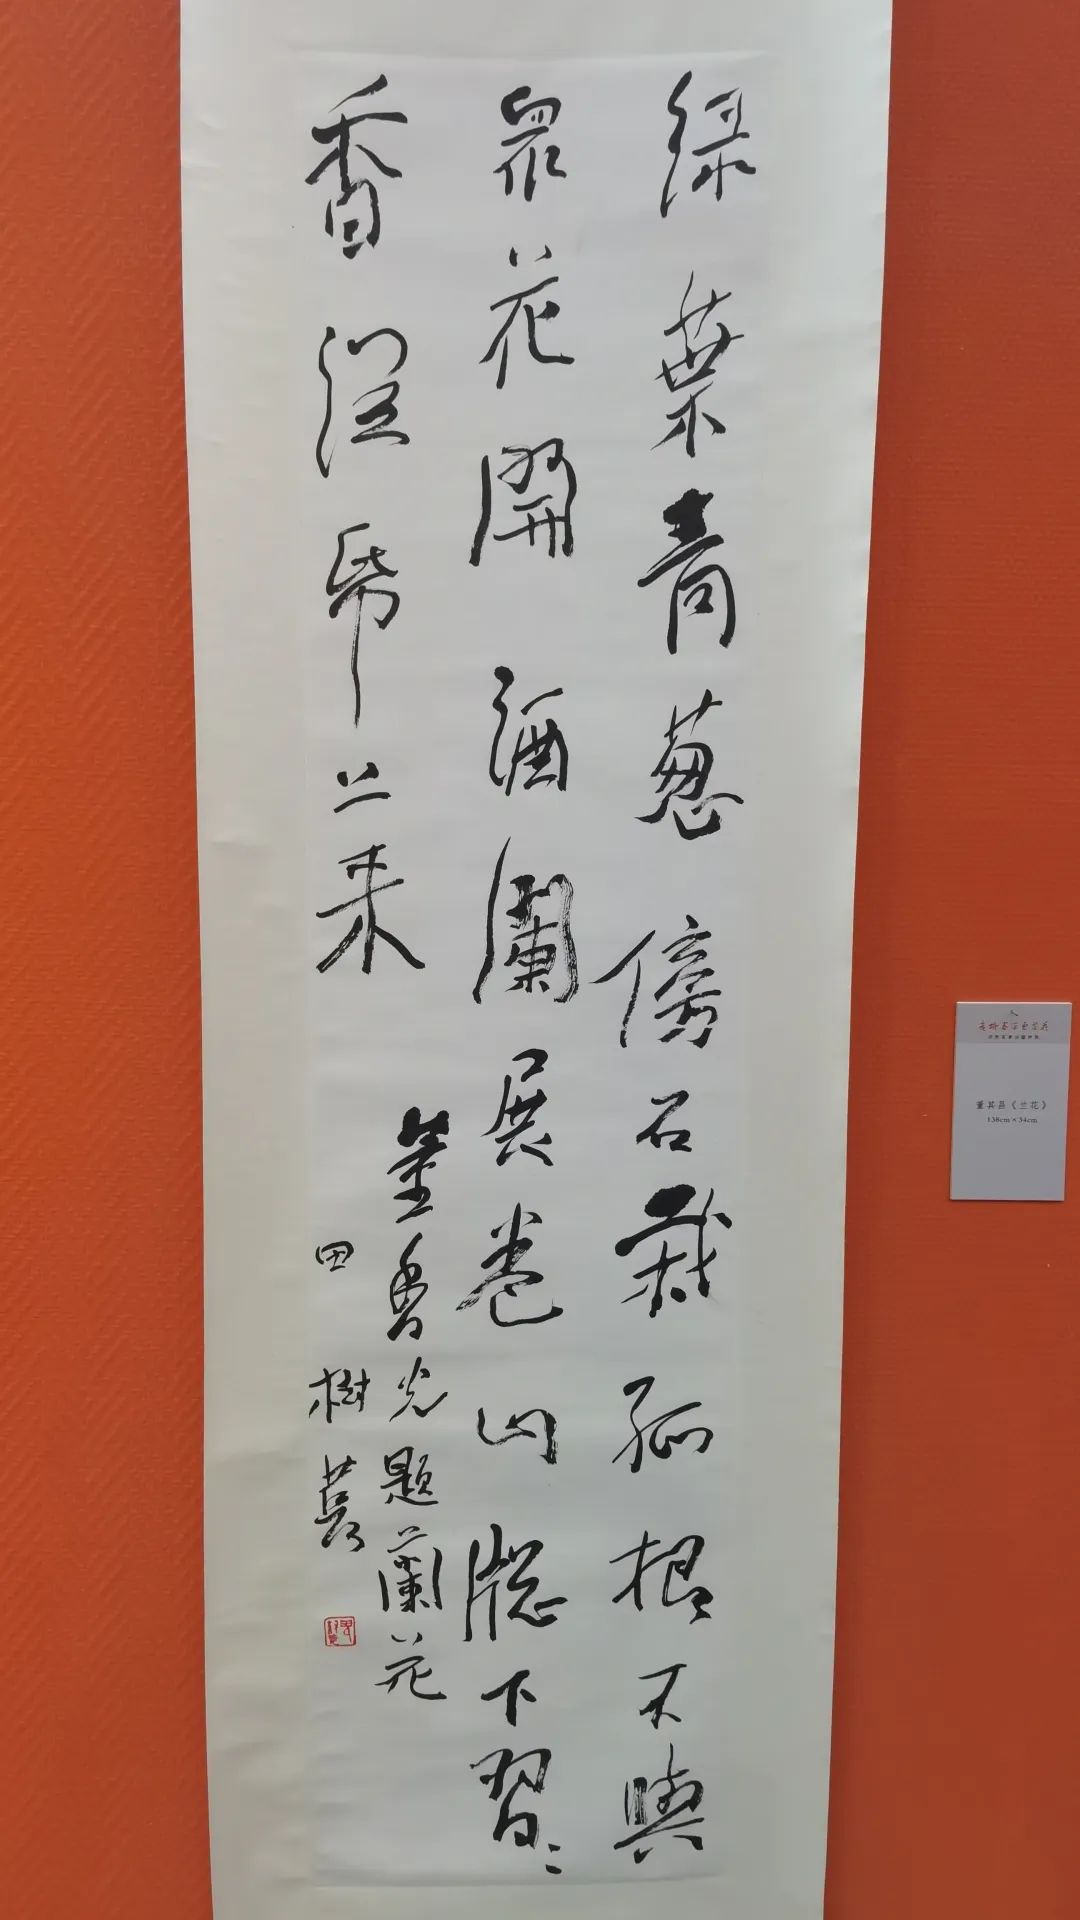 绿葉青葱傍石栽孤根不與
衆花開酒闌展卷山牕下習〻
香從帋上来
董香光題蘭花
田樹萇
董其昌《兰花》
138cm×34cm